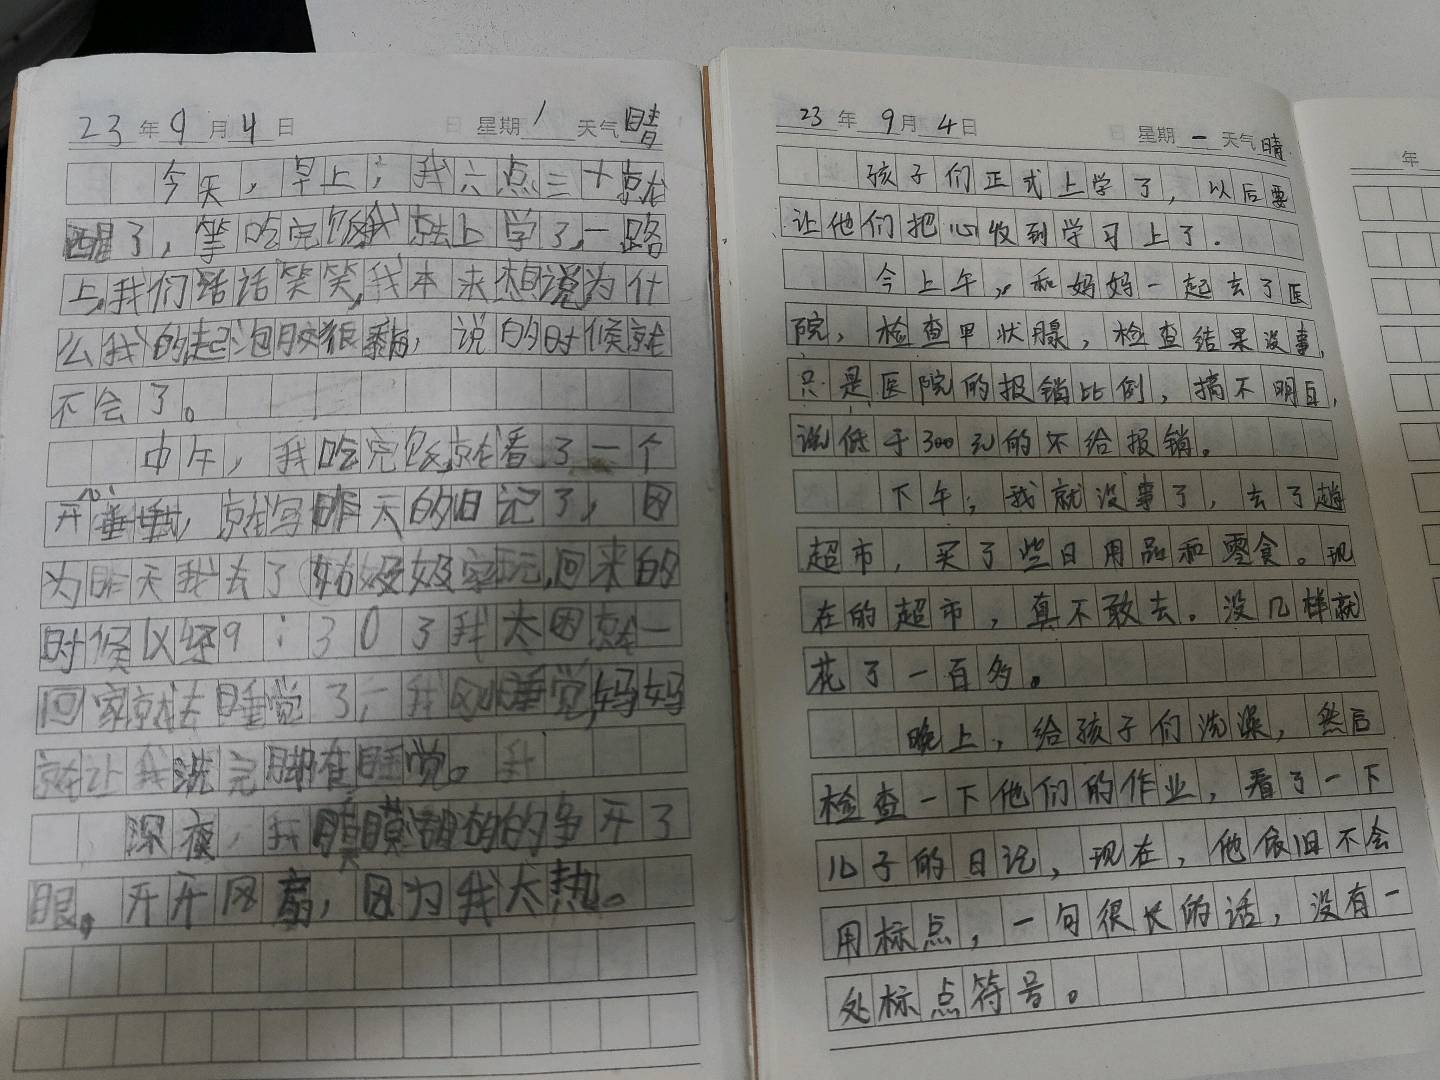 23年9月4日 星期1 天气晴
今天，早上；我六点三十就
醒了，等吃完饭我就上学了，一路
上，我们话话笑笑，我本来想说为什
么我的起泡胶很黏，说的时候就
不会了。
中午，我吃完饭，就看了一个
开，就写昨天的日记了，因
为昨天我去了姑家玩，回来的
时候以经9：30了我太困就一
回家就去睡觉了，我刚睡觉，妈妈
就让我洗完脚在睡觉。我
深夜，我糊的的争开了
眼，开开风扇，因为我太热。
23年9月4日 星期一 天气晴
孩子们正式上学了，以后要
让他们把心收到学习上了．
今上午，和妈妈一起去了医
院，检查甲状腺，检查结果没事，
只是医院的报销比例，搞不明白，
说低于300元的不给报销。
下午；我就没事了，去了趟
超市，买了些日用品和零食。现
在的超市，真不敢去。没几样就
花了一百多。
晚上，给孩子们洗澡，然后
检查一下他们的作业，看了一下
儿子的日记，现在，他依旧不会
用标点，一句很长的话，没有一
处标点符号。
年